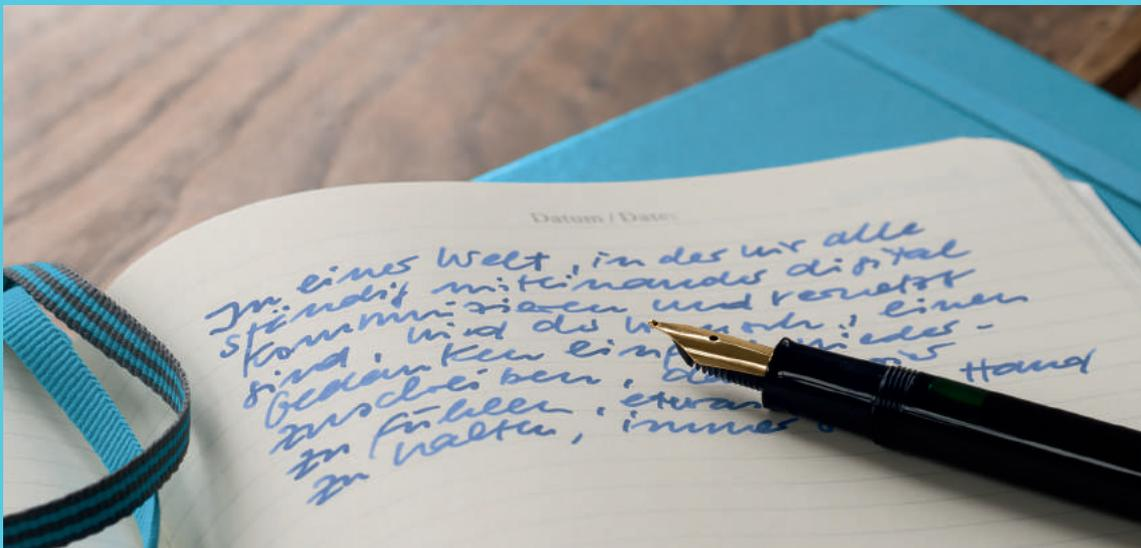 Datum / Date:
In einer Welt, in der wir alle
ständig miteinander digital
kommunizieren und vernetzt
sind, wird der Wunsch, einen
Gedanken einfach nieder-
zuschreiben,
zu fühlen, etwas Hand
zu halten, immer